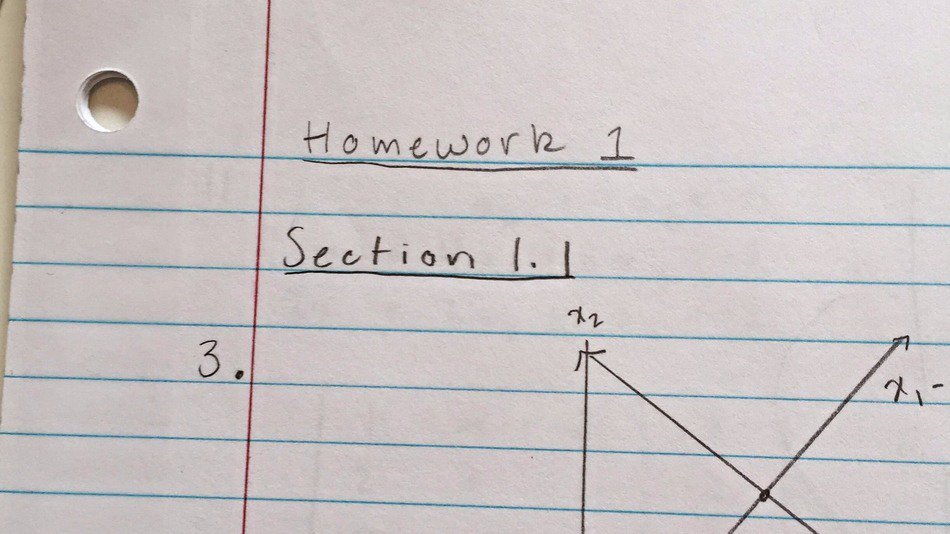 Homework 1
Section 1.1
x₂
3.
x₁-